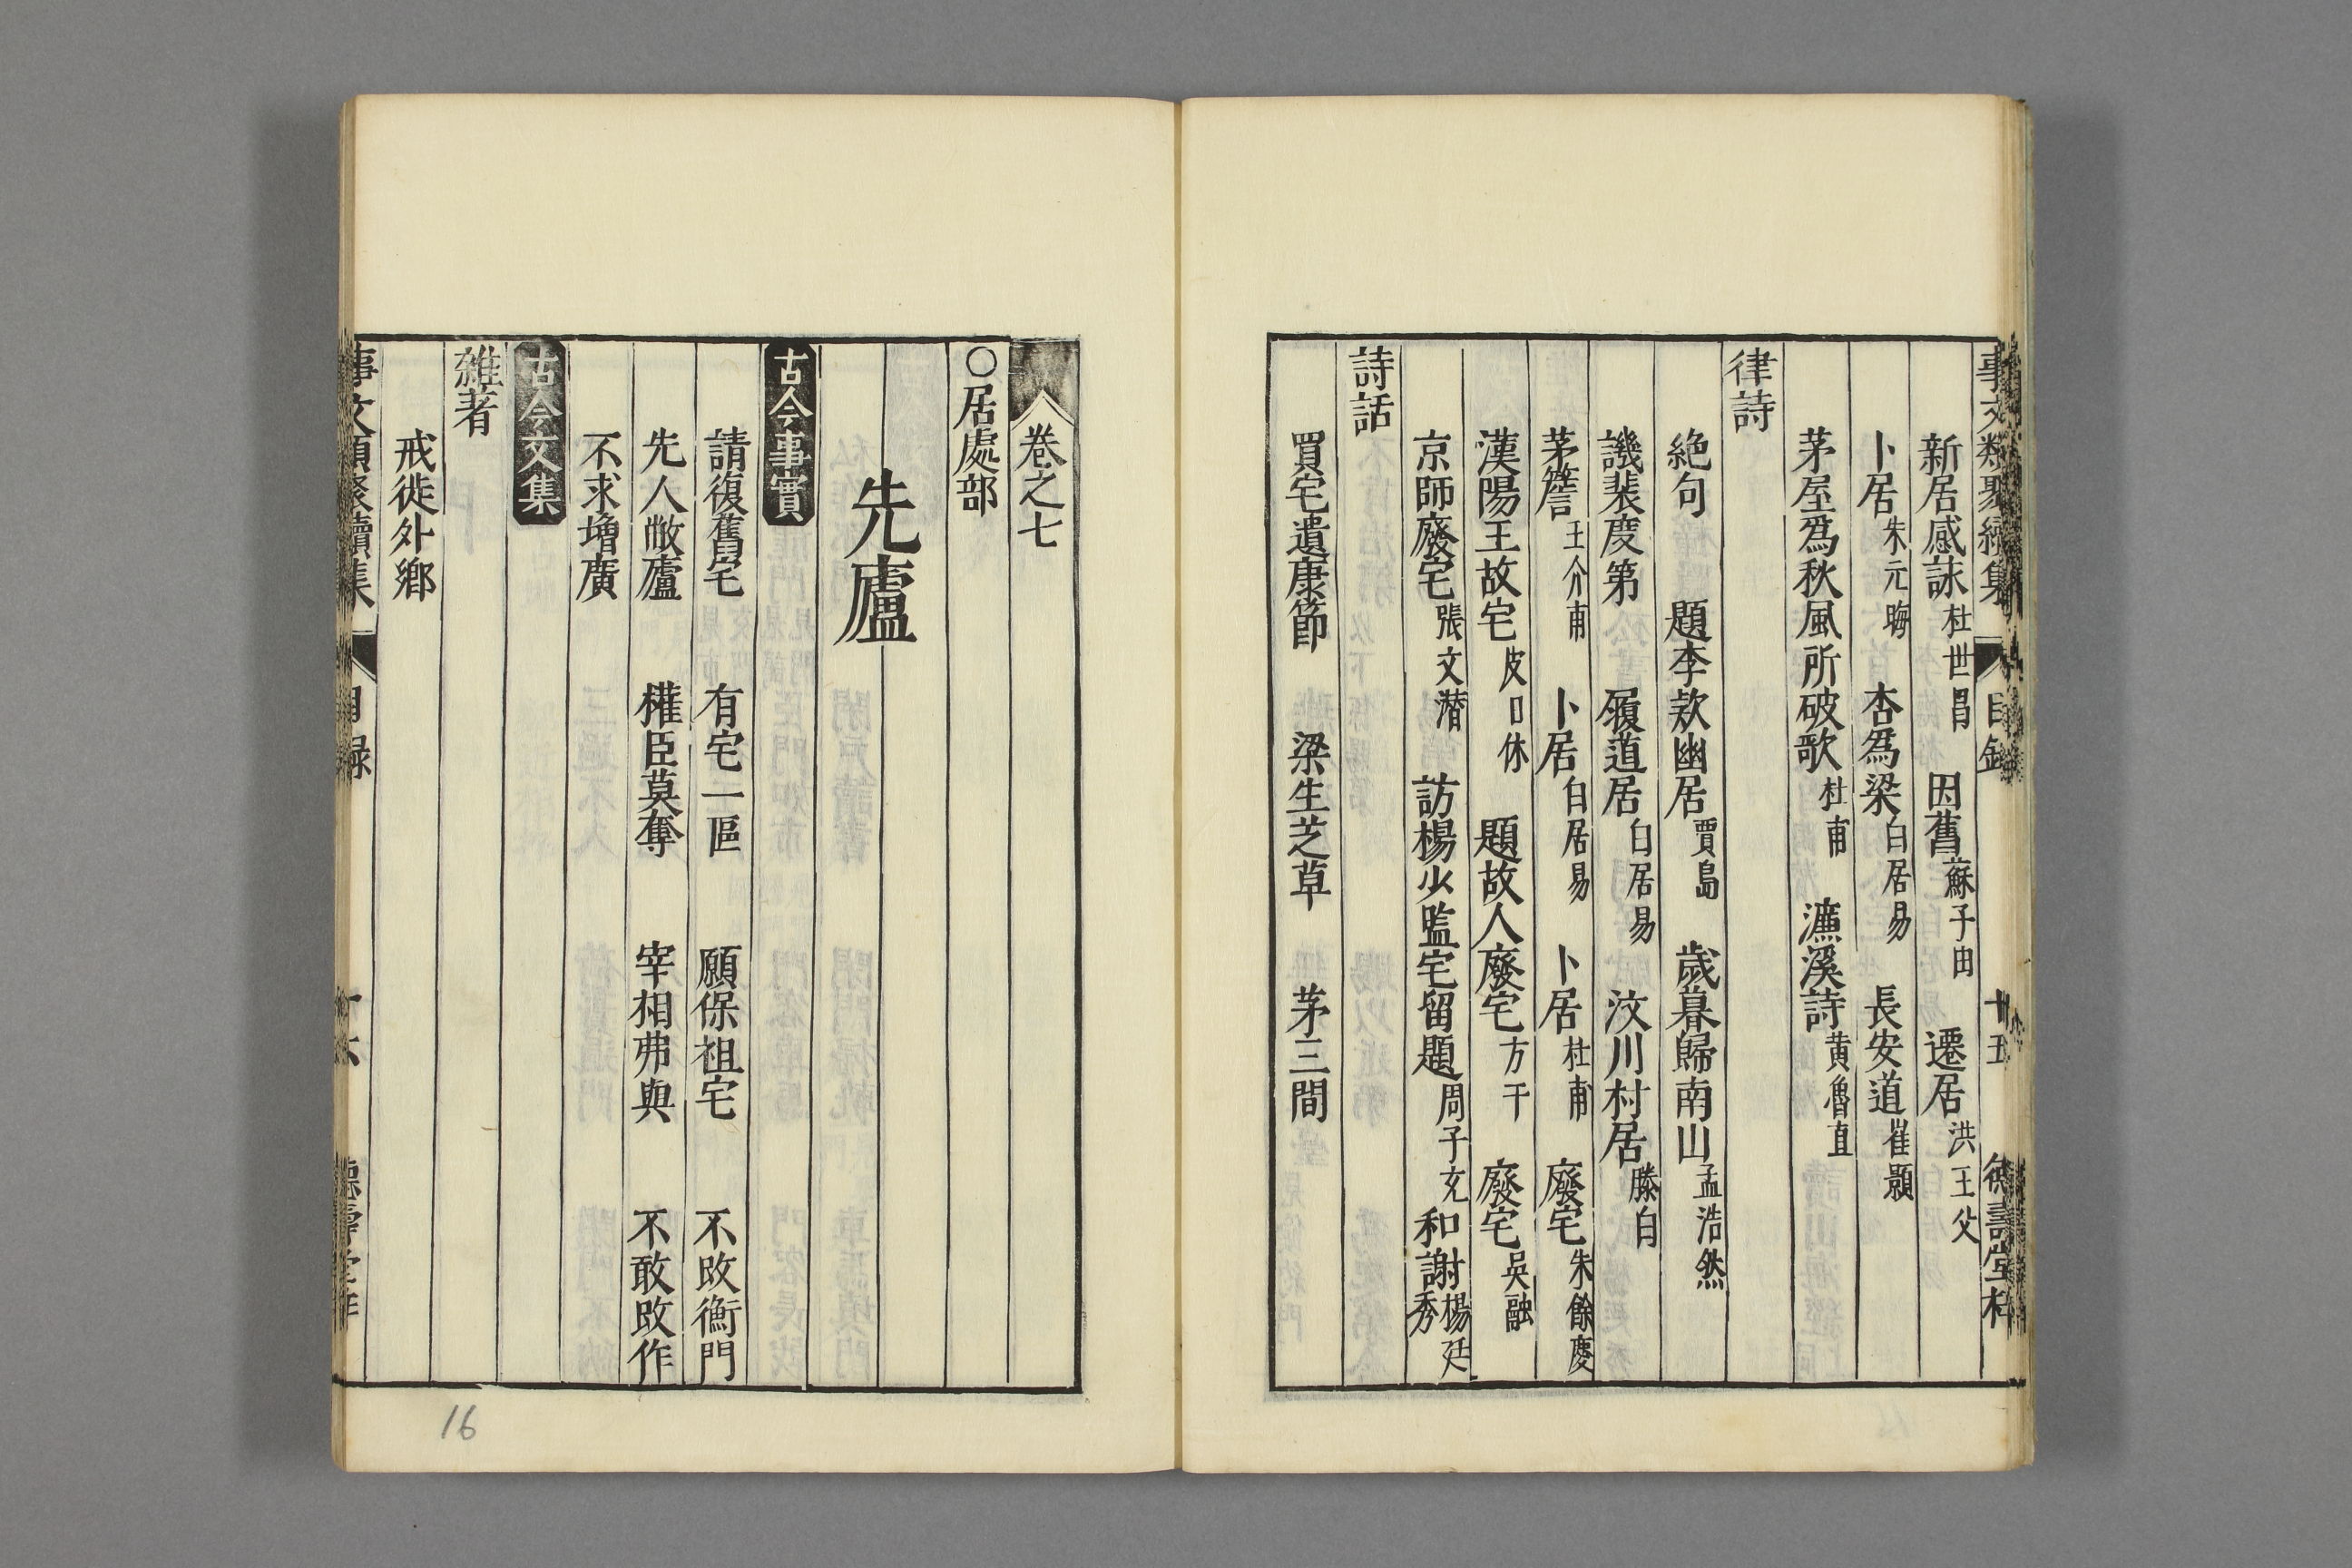 事文類聚續集 目録 廿五 德壽堂梓
新居感詠 杜世昌 因舊 蘇子由 遷居 洪王父
卜居 朱元晦 杏爲梁 白居易 長安道 崔顥
茅屋爲秋風所破歌 杜甫 濂溪詩 黄魯直
律詩
絶句 題李欵幽居 賈島 歲暮歸南山 孟浩然
譏裴度第 履道居 白居易 汶川村居 滕白
茅簷 王介甫 卜居 白居易 卜居 杜甫 廢宅 朱餘慶
漢陽王故宅 皮日休 題故人廢宅 方干 廢宅 吳融
京師廢宅 張文潜 訪楊少監宅留題 周子充 和謝 楊廷秀
詩話
買宅遺康節 梁生芝草 茅三間
卷之七
○居處部
先廬
古今事實
請復舊宅 有宅一區 願保祖宅 不改衡門
先人敝廬 權臣莫奪 宰相弗與 不敢改作
不求增廣
古今文集
雜著
戒徙外鄉
事文類聚續集 目録 德壽堂梓
16